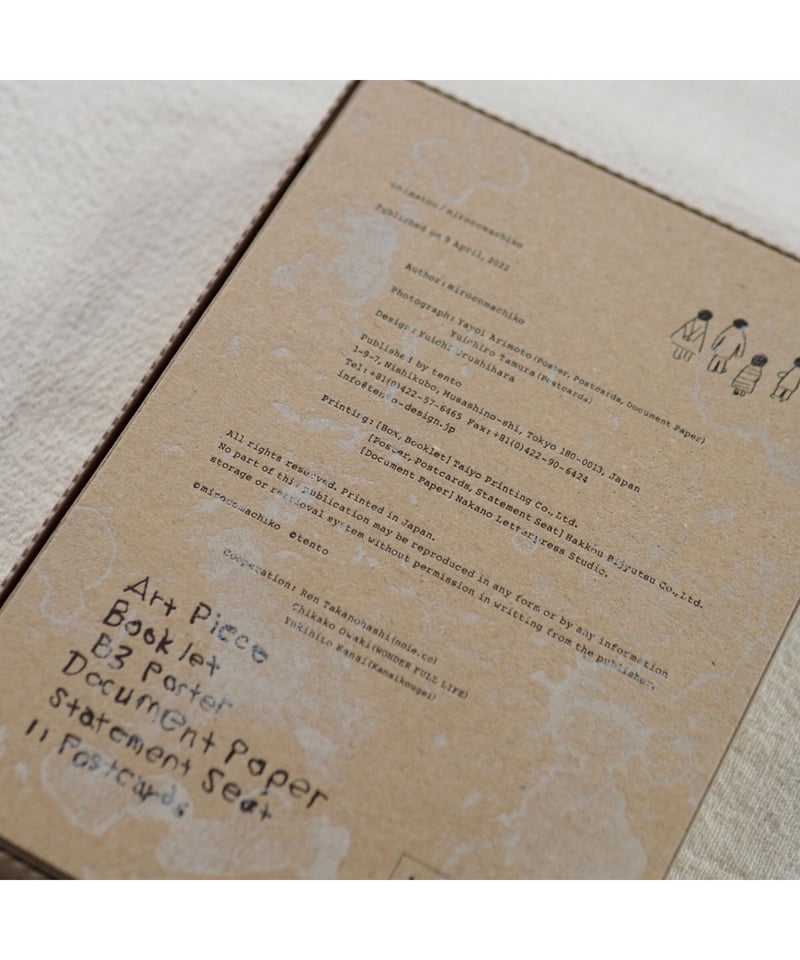 unimatsu/mirocomachiko
Published on 5 April, 2022
Author: mirocomachiko
Photograph: Yayoi Arimoto (Poster, Postcards, Document Paper)
Yuichiro Tamura (Postcards)
Design: Yuichi Urushihara
Published by tento
1-9-7, Nishikubo, Musashino-shi, Tokyo 180-0013, Japan
Tel: +81(0)422-57-6465 Fax: +81(0)422-90-6424
info@tento-design.jp
Printing: [Box, Booklet] Taiyo Printing Co., Ltd.
[Poster, Postcards, Statement Seat] Hakkou Bijyutsu Co., Ltd.
[Document Paper] Nakano Letterpress Studio.
All rights reserved. Printed in Japan.
No part of this publication may be reproduced in any form or by any information
storage or retrieval system without permission in writting from the publisher.
©mirocomachiko ©tento
Cooperation: Ren Takahashi (noie.cc)
Chikako Owaki (WONDER FULL LIFE)
Yukihito Kanai (Kanaikougei)
Art Piece
Booklet
B3 Poster
Document Paper
Statement Seat
11 Postcards